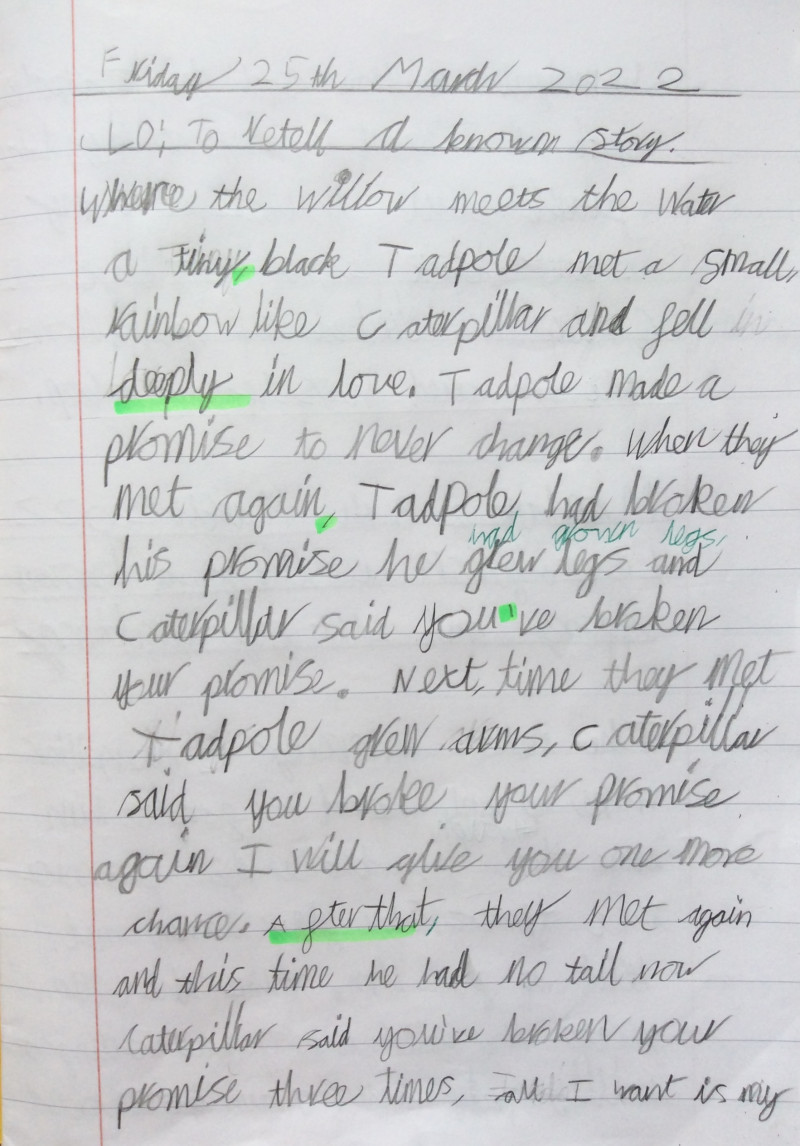 Friday 25th March 2022
LO; To Retell a known story.
Where the willow meets the water
a tiny, black Tadpole met a small,
rainbow like Caterpillar and fell in
deeply in love. Tadpole made a
promise to never change. When they
met again, Tadpole, had broken
had grown legs,
his promise he grew legs and
Caterpillar said you've broken
your promise. Next, time they met
Tadpole grew arms, Caterpillar
said you broke your promise
again I will give you one more
chance. After that, they met again
and this time he had no tail now
Caterpillar said you've broken your
promise three times, I want is my